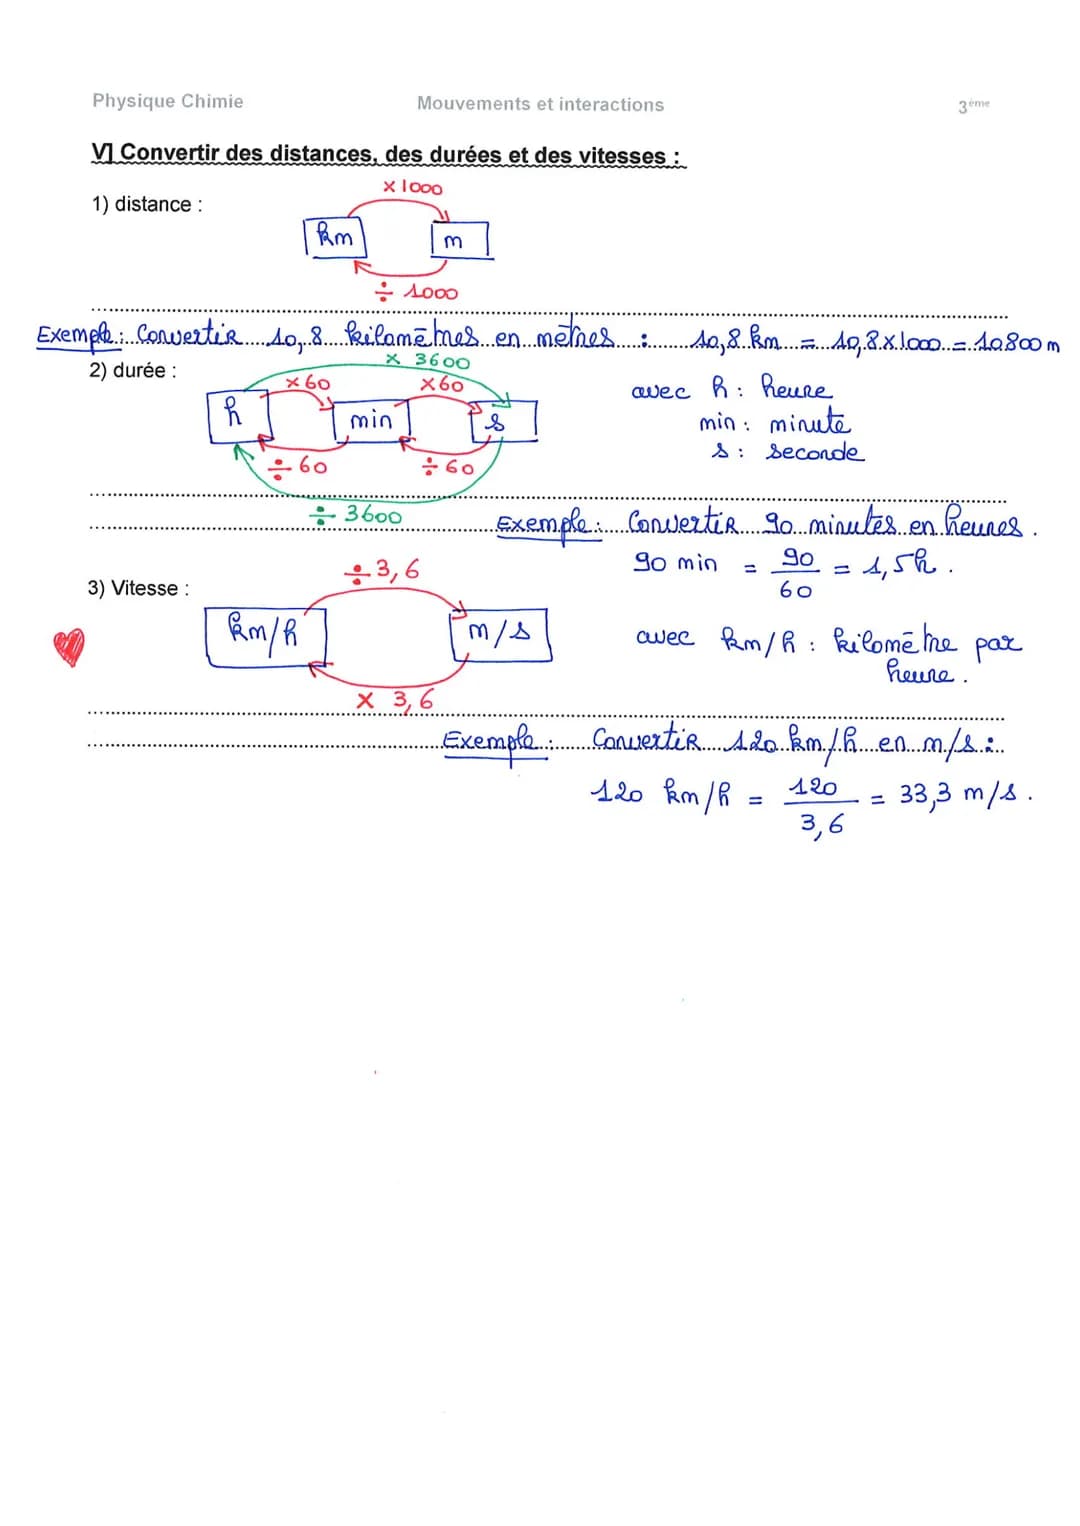 Physique Chimie Mouvements et interactions 3ème
V] Convertir des distances, des durées et des vitesses :
× 1000
1) distance :
km m
÷ 1000
Exemple : Convertir 10,8 kilomètres en mètres : 10,8 km = 10,8 × 1000 = 10800 m
× 3600
2) durée :
×60 ×60 avec h : heure
h min s min : minute
÷ 60 ÷ 60 s : seconde
÷ 3600
Exemple : Convertir 90 minutes en heures.
90 min = 90/60 = 1,5h.
÷ 3,6
3) Vitesse :
km/h m/s avec km/h : kilomètre par
heure.
× 3,6
Exemple : Convertir 120 km/h en m/s :
120 km/h = 120/3,6 = 33,3 m/s.